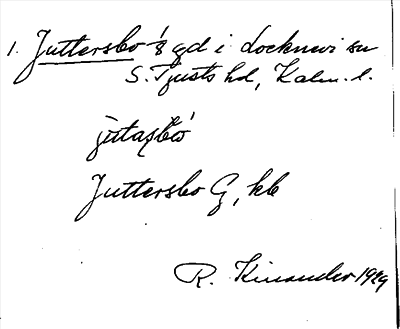 1. Juttersbo 1/8 gd i Locknevi sn
S. Tjusts hd, Kalm. l.
Juttersbo G, kb
R. Kinander 1929